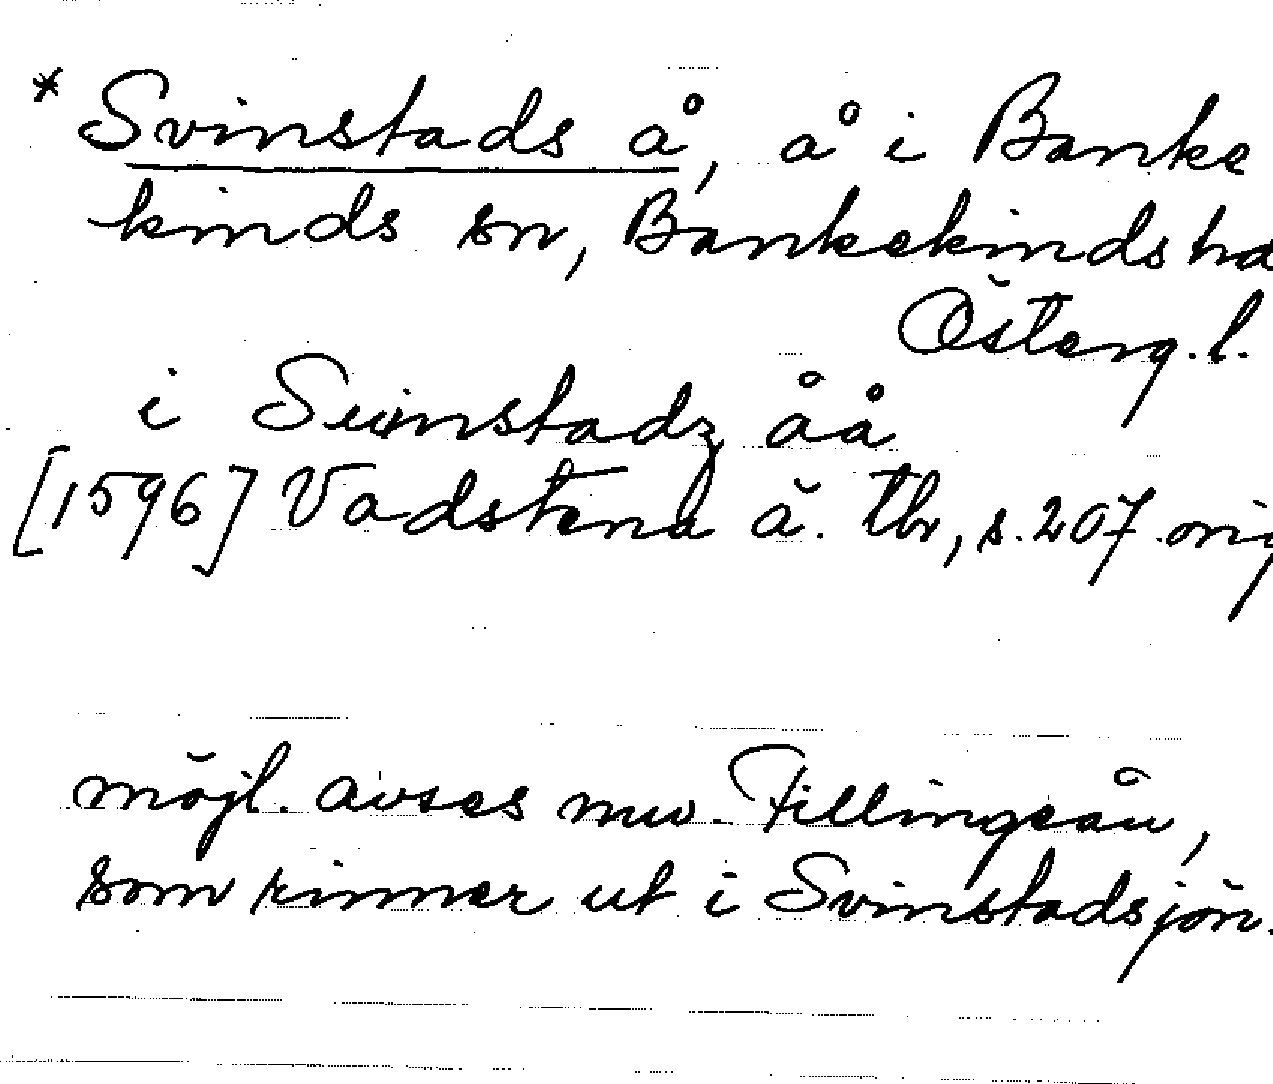 * Svinstads å, å i Banke
kinds sn, Bankekinds hd
Österg. l.
i Suinstadz åå
[1596] Vadstena ä. tbr, s. 207 orig
möjl. avses nuv. Fillingeån,
som rinner ut i Svinstadsjön.